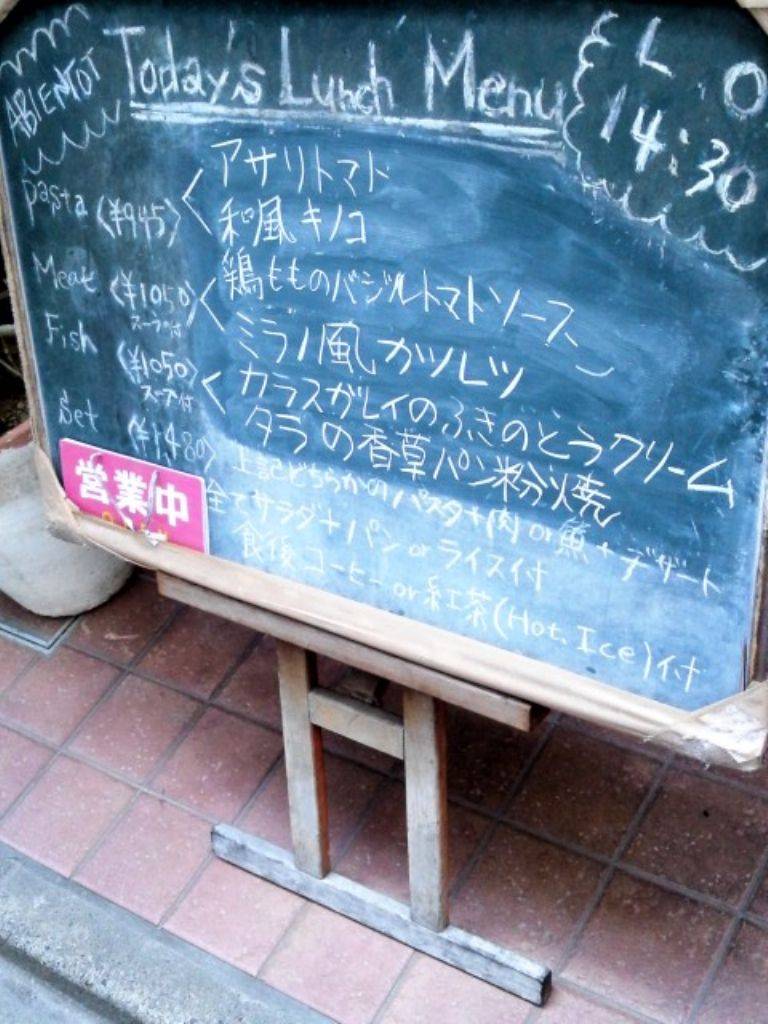 ABIENTOT
Today's Lunch Menu
L O
14:30
Pasta 〈¥945〉
アサリトマト
和風キノコ
Meat 〈¥1050〉
スープ付
鶏もものバジルトマトソース
ミラノ風カツレツ
Fish 〈¥1050〉
スープ付
カラスガレイのふきのとうクリーム
タラの香草パン粉焼
Set 〈¥1,480〉
上記どちらかのパスタ+肉 or 魚+デザート
全てサラダ+パン or ライス付
食後コーヒー or 紅茶(Hot. Ice)付
営業中